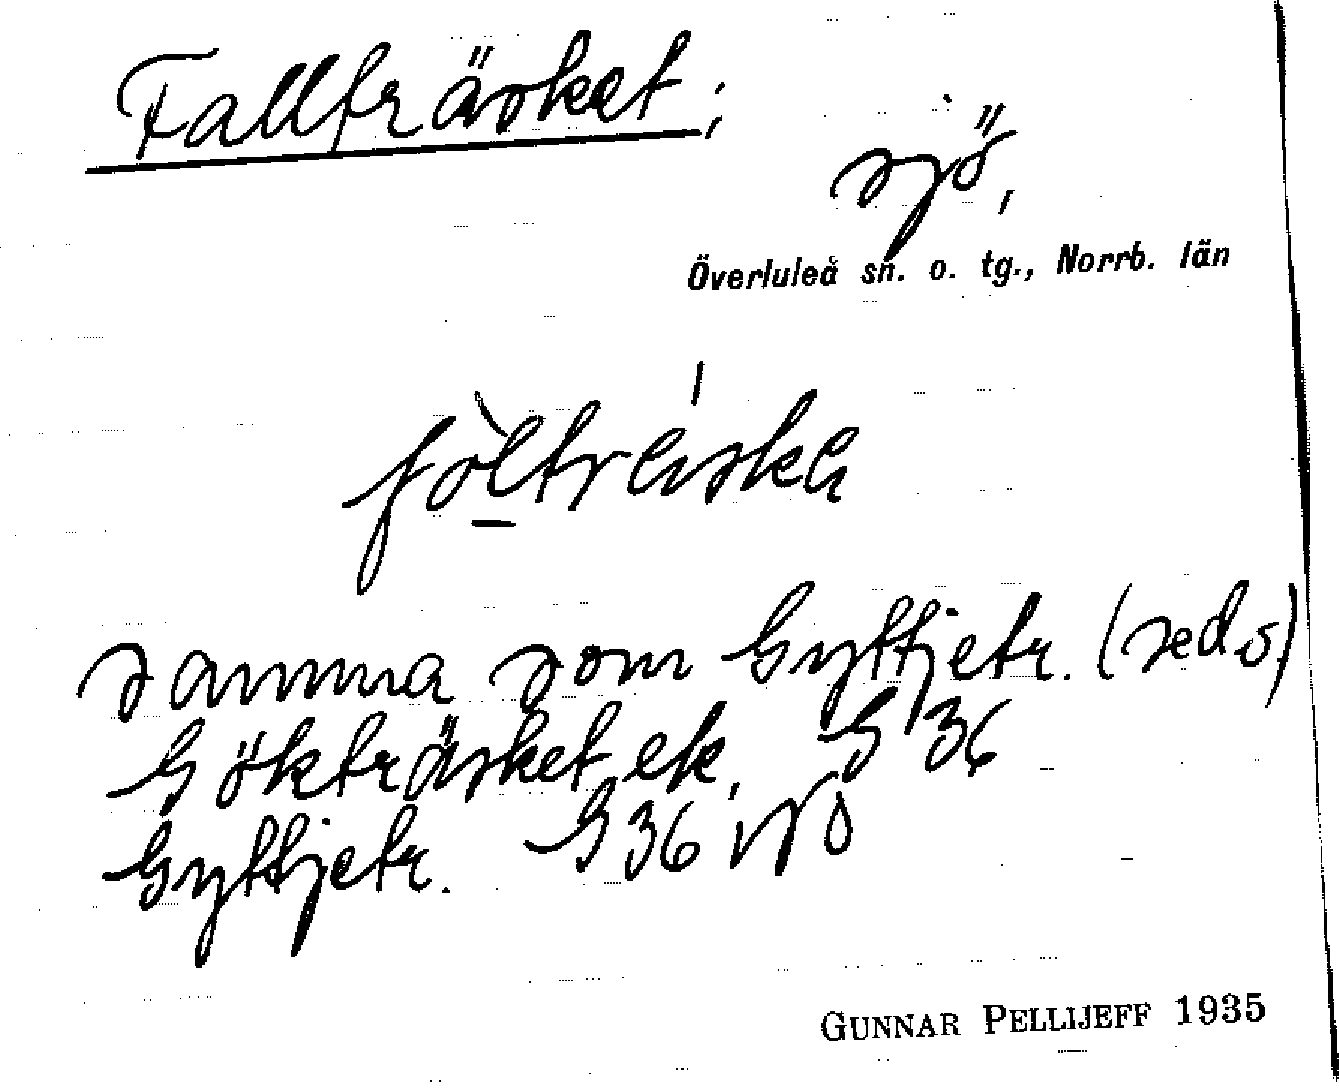 Fallträsket;
sjö,
Överluleå sn. o. tg., Norrb. län
fòltrèska
samma som Gyttjetr. (sed o)
Gökträsket ek. G 36
Gyttjetr. G 36 NO
GUNNAR PELLIJEFF 1935